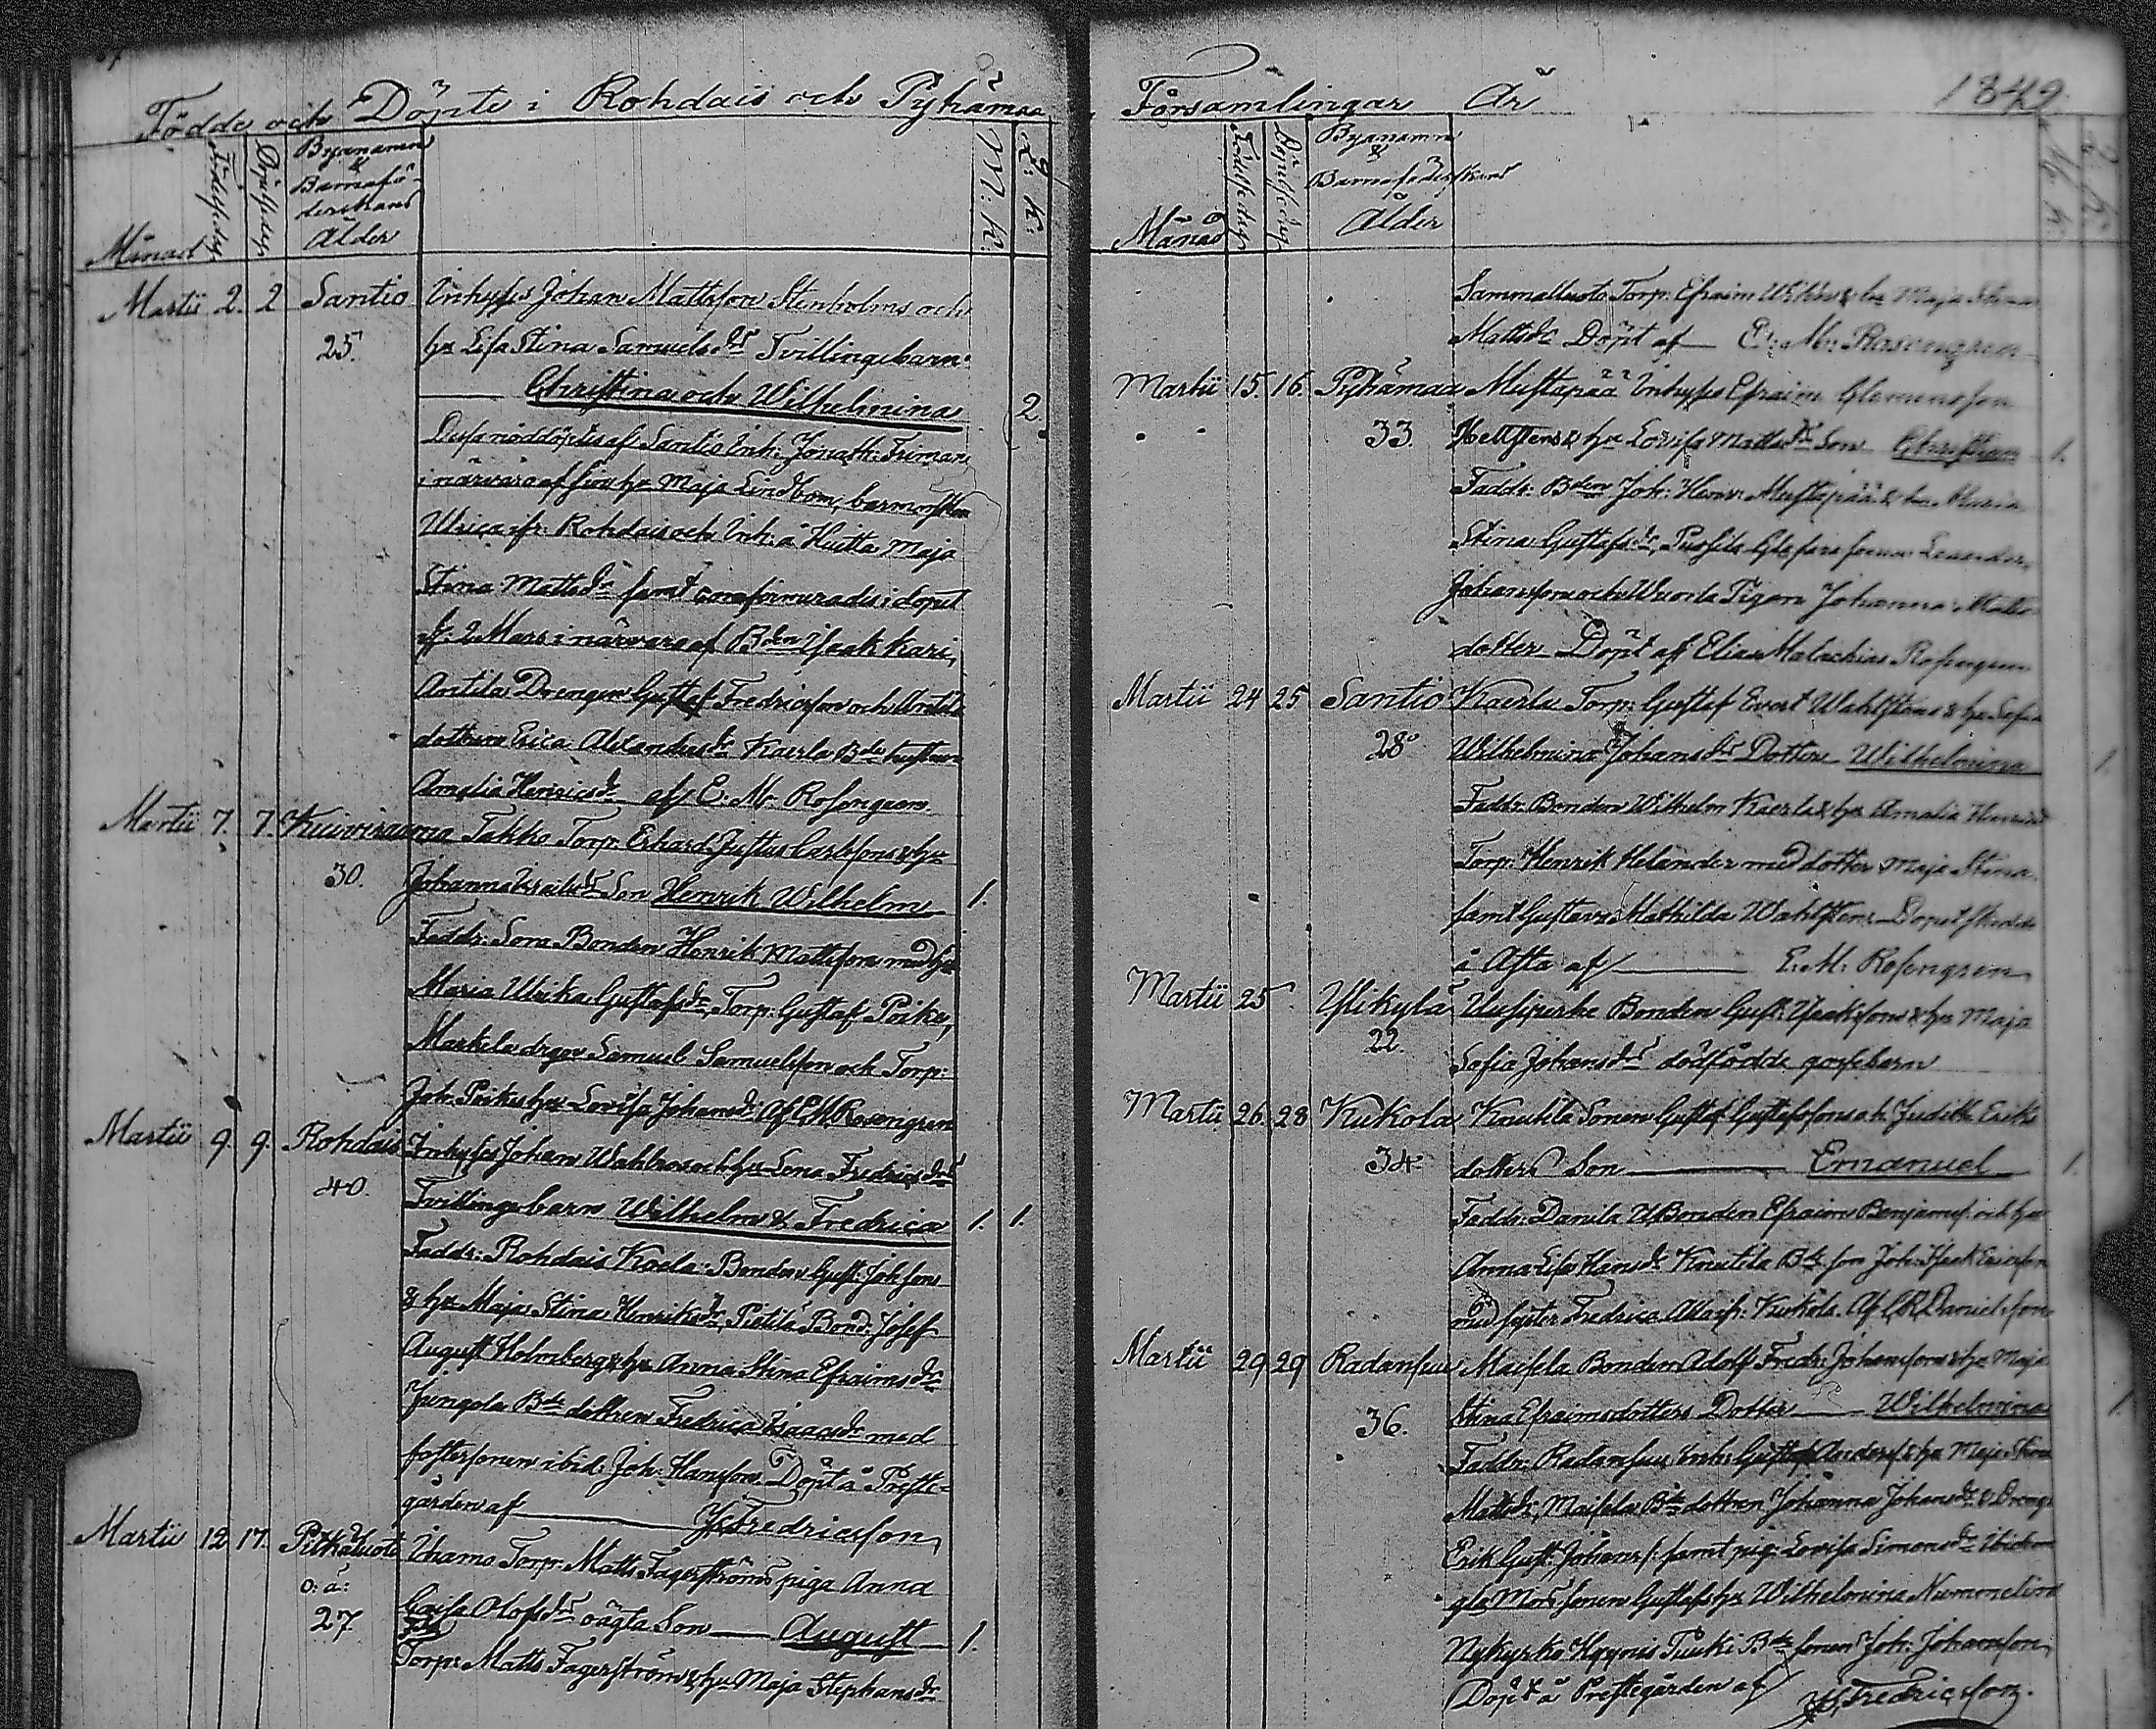 Födde och Döpte i Rohdais och Pyhämaa
Månad Födelsedag Döpelsedag Byanamn & Barnaföderskans Ålder M:k: Q:k:
Martii 2. 2 Santio Inhyses Johan Mattsson Stenholms och
25. hu Lisa Stina Samuelsdrs Tvillingebarn
Christina och Wilhelmina 2.
Desse nöddöptes af Santio Inh: Jonath: Friman
i närvaro af sin hu Maja Lindbom, barnmorskan
Ulrica ifr: Rohdais och Inh: å Huitta Maja
Stina Mattsdr samt confirmerades i dopet
d: 2 Mars i närvaro af Bden Isaak Kari,
Antila Drengen Gustaf Fredricsson och Antila
dottren Erica Alexandersdr Kaerla Bde hustrun
Amalia Henricsdr af E. M. Rosengren
Martii 7. 7. Kuivirauma Takko Torp. Erhard Justus Carlssons & hu
30. Johanna Israelsdrs Son Henrik Wilhelm 1.
Faddr: Sora Bonden Henrik Mattsson med hu
Maria Ulrika Gustafsdr, Torp: Gustaf Poikus,
Markela drgen Samuel Samuelsson och Torp:
Joh. Poikus hu Lovisa Johansdr. Af E M Rosengren
Martii 9. 9. Rohdais Inhyses Johan Wahlros och hu Lena Fredricsdrs
40. Tvillingebarn Wilhelm & Fredrica 1. 1.
Faddr: Rohdais Kaela Bonden Gust: Johsson
& hu Maja Stina Henriksdr, Pietilä Bond: Josef
August Holmberg & hu Anna Stina Efraimsdr
Jungola Bde dottren Fredrica Isaacsdr med
fostersonen ibid: Joh: Hansson. Döpt å Prestegården
af Is. Fredricsson
Martii 12 17. Pitkäluoto Ihamo Torp: Matts Fagerströms piga Anna
o: ä:
27 Caisa Olofsdrs oägta Son August 1.
Fdr Torp: Matts Fagerström & hu Maja Stephansdr
Församlingar År 1849.
Månad Födelsedag Döpelsedag Byanamn & Barnaföderskans Ålder M: k: Q: k:
Sammalluoto Torp: Efraim & hu Maja Stina
Mattsdr Döpt af E: M: Rosengren
Martii 15. 16. Pyhämaa Mustapää Inhyses Efraim Clemensson
33. Hellstens & hu Lovisa Mattsdrs Son Christian 1.
Faddr: Bden Joh: Henr: Mustapää & hu Maria
Stina Gustafsdr, Leander
Johansson och Wuorela Pigan Johanna Matts
dotter Döpt af Elias Malachias Rosengren
Martii 24 25 Santio Kaerla Torp: Gustaf Evert Wahlstens & hu Sofia
28 Wilhelmina Johansdrs Dotter Wilhelmina 1.
Faddr: Bonden Wilhelm Kaerla & hu Amalia Henricsdr
Torp: Henrik Helander med dotter Maja Stina
samt Gustava Mathilda Wahlsten. Dopet skedde
å Afta af E: M: Rosengren
Martii 25 Ylikylä Uusiperke Bonden Gust: Isakssons & hu Maja
22. Sofia Johansdrs dödfödde gossebarn
Martii 26. 28 Kukola Knutila Sonen Gustaf Gustafssons o. h. Judith Eriks
34. dotters Son Emanuel 1.
Faddr: Danila UBonden Efraim Benjamins: och hu
Anna Lisa Hansdr Knutila Bde son Joh: Isak Ericsson
med syster Fredrica Alla fr: Kukola. Af C R Danielsson
Martii 29 29 Radansuu Maisela Bonden Adolf Fredr: Johanssons & hu Maja
36. Stina Efraimsdotters Dotter Wilhelmina 1.
Faddr: Radansuu Inh: Gustaf Anders: & hu Maja Stina
Mattsdr, Maisela Bde dottren Johanna Johansdr & Dreng:
Erik Gust: Johans: samt pig: Lovisa Simonsdr ibidem
gla Mors sonen Gustafs hu Wilhelmina Nummelin
Nykyrko Kyynis Tuuki Bde sonen Joh: Johansson
Döpt å Prestegården af Is. Fredricsson.